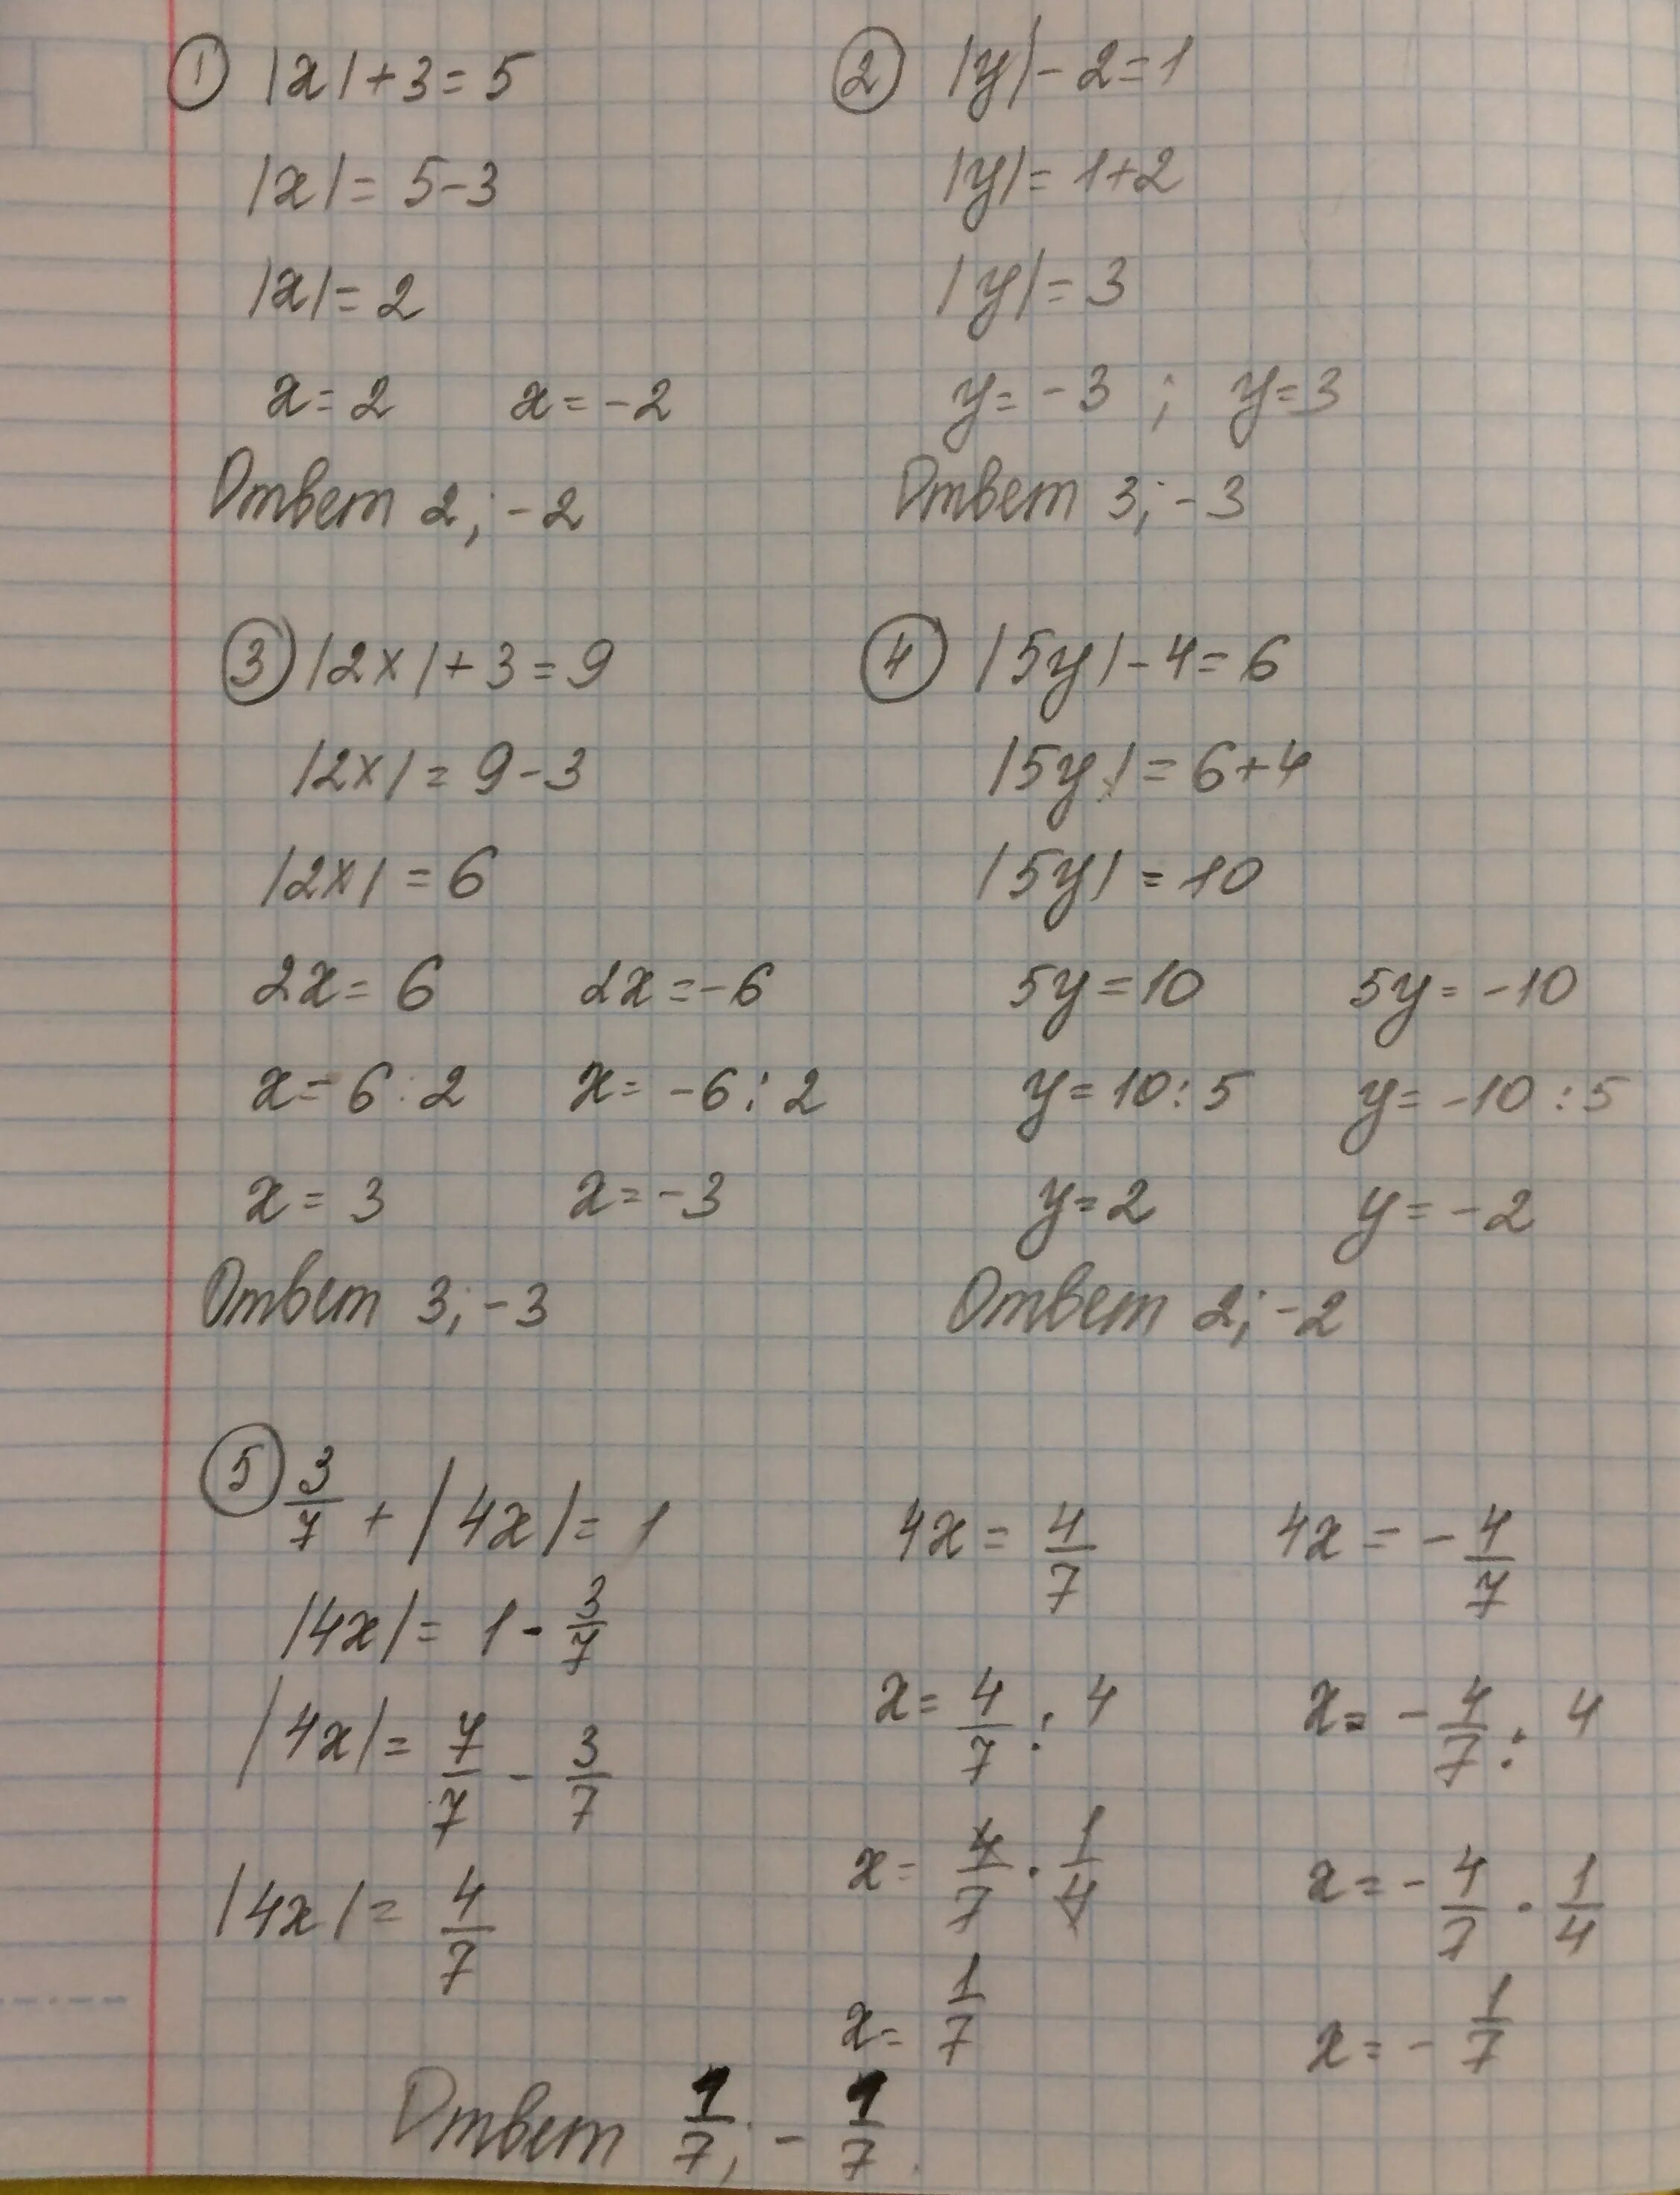 ① |x|+3=5
|x|= 5-3
|x|=2
x=2 x=-2
Ответ 2; -2
② |y|-2=1
|y|= 1+2
|y|=3
y=-3 ; y=3
Ответ 3; -3
③ |2x|+3=9
|2x|=9-3
|2x|=6
2x=6 2x=-6
x=6:2 x=-6:2
x=3 x=-3
Ответ 3; -3
④ |5y|-4=6
|5y|=6+4
|5y|=10
5y=10 5y=-10
y=10:5 y=-10:5
y=2 y=-2
Ответ 2; -2
⑤ 3/7 + |4x|=1
|4x|= 1 - 3/7
|4x|= 7/7 - 3/7
|4x|= 4/7
4x= 4/7 4x=- 4/7
x= 4/7 : 4 x=- 4/7 : 4
x= 4/7 · 1/4 x=- 4/7 · 1/4
x= 1/7 x=- 1/7
Ответ 1/7; - 1/7.